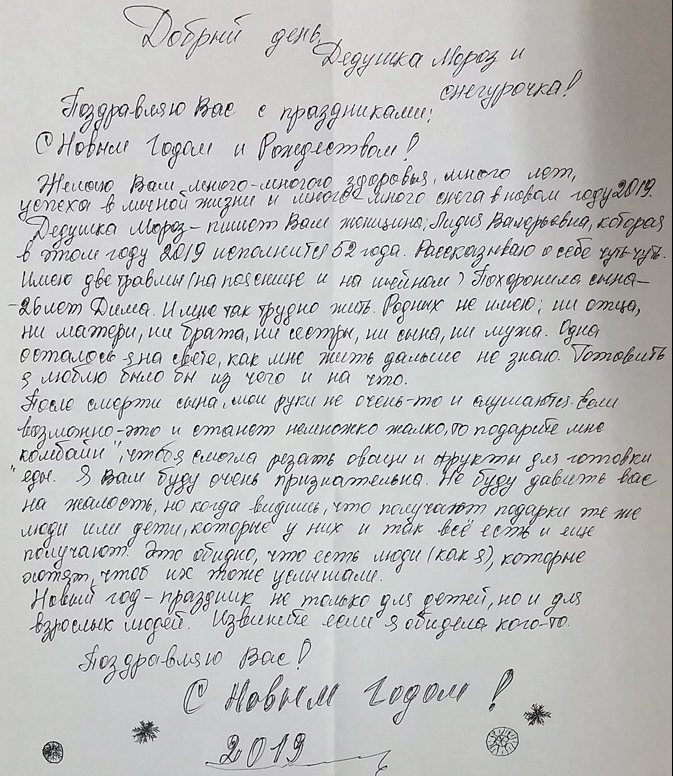 Добрый день,
Дедушка Мороз и
снегурочка!
Поздравляю Вас с праздниками:
С Новым Годом и Рождеством!
Желаю Вам много-много здоровья, много лет,
успеха в личной жизни и много-много снега в новом году 2019.
Дедушка Мороз - пишет Вам женщина: Лидия Валерьевна, которая
в этом году 2019 исполнится 52 года. Рассказываю о себе чуть-чуть.
Имею две травмы (на пояснице и на шейном) Похоронила сына-
-26 лет Дима. И мне так трудно жить. Родных не имею; ни отца,
ни матери, ни брата, ни сестры, ни сына, ни мужа. Одна
осталось я на свете, как мне жить дальше не знаю. Готовить
я люблю было бы из чего и на что.
После смерти сына, мои руки не очень-то и слушаются. Если
возможно-это и станет немножко жалко, то подарите мне
"комбайн", чтоб я смогла резать овощи и фрукты для готовки
еды. Я Вам буду очень признательна. Не буду давить вас
на жалость, но когда видишь, что получают подарки те же
люди или дети, которые у них и так всё есть и еще
получают. Это обидно, что есть люди (как я), которые
хотят, чтоб их тоже услышали.
Новый год - праздник не только для детей, но и для
взрослых людей. Извините если я обидела кого-то.
Поздравляю Вас!
С Новым Годом!
2019